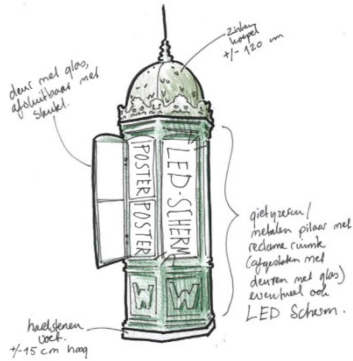 zinken
koepel
+/- 120 cm
deur met glas,
afsluitbaar met
sleutel.
POSTER
POSTER
LED-SCHERM
gietijzeren/
metalen pilaar met
reclame ruimte
(afgesloten met
deuren met glas)
eventueel ook
LED Scherm.
W W
hardstenen
voet.
+/- 15 cm hoog